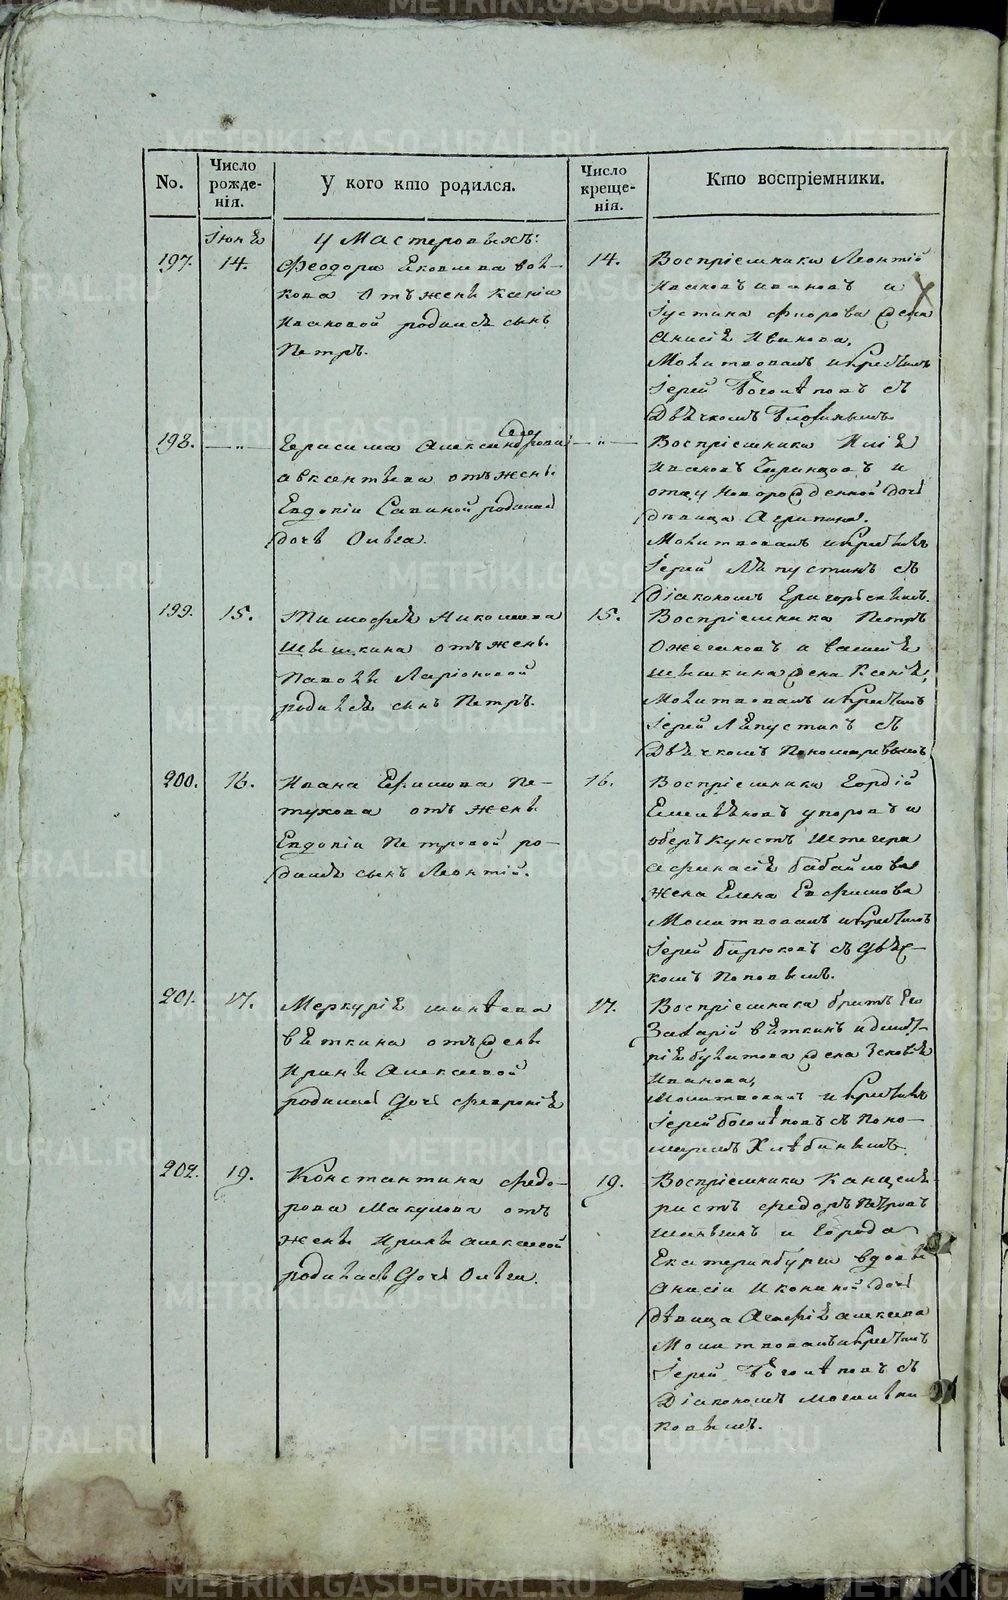 No.
Число рожде-
нія.
У кого кто родился.
Число креще-
нія.
Кто воспріемники.
Іюнѣ
У Мастеровыхъ:
197.
14.
Феодора Яковлева
кова отъ жены Ксеніи
Ивановой родился сынъ
Петръ.
14.
Воспріемники Леонтій
Ивановъ Ивановъ и
Іустина Флорова жена
Анисія Иванова,
Молитвовалъ и крестилъ
Іерей съ
Дьячкомъ
198.
— " —
Герасима Александрова
Авксентьева отъ жены
Евдокіи Савиной родилась
дочь Ольга
— " —
Воспріемники Илія
Ивановъ и
отца новорожденной дочь
дѣвица Агрипина.
Молитвовалъ и крестилъ
Іерей Ляпустинъ съ
Діакономъ
199.
15.
Тимофея Николаева
Шышкина отъ жены
Ларіоновой
родился сынъ Петръ.
15.
Воспріемники Петръ
Ожеговъ и
Шышкина жена Ксенія,
Молитвовалъ и крестилъ
Іерей Ляпустинъ съ
Дьячкомъ Пономаревымъ
200.
16.
Ивана Ефимова Пе-
тухова отъ жены
Евдокіи Петровой ро-
дился сынъ Леонтій.
16.
Воспріемники Гордій
Емельяновъ Упоровъ и
оберъ кунстъ штегера
Афанасія Бабайлова
жена Елена Ефимова
Молитвовалъ и крестилъ
Іерей Бирюковъ съ дьяч-
комъ Поповымъ.
201.
17.
Меркурія
Вяткина отъ жены
Ирины Алексеевой
родилась дочь Февронія
17.
Воспріемники братъ его
Захарій Вяткинъ и Дмит-
рія Булатова жена Зеновія
Иванова,
Молитвовалъ и крестилъ
Іерей съ Поно-
маремъ Хлѣбинымъ.
202.
19.
Константина Федо-
рова Макулова отъ
жены Ирины Алексеевой
родилась дочь Ольга.
19.
Воспріемники Канцеля-
ристъ Федоръ Петровъ
Шаньгинъ и города
Екатеринбурга вдовы
Анисіи Икониной дочь
дѣвица Алексеева
Молитвовалъ и крестилъ
Іерей съ
Діакономъ
ковымъ.
METRIKI.GASO-URAL.RU